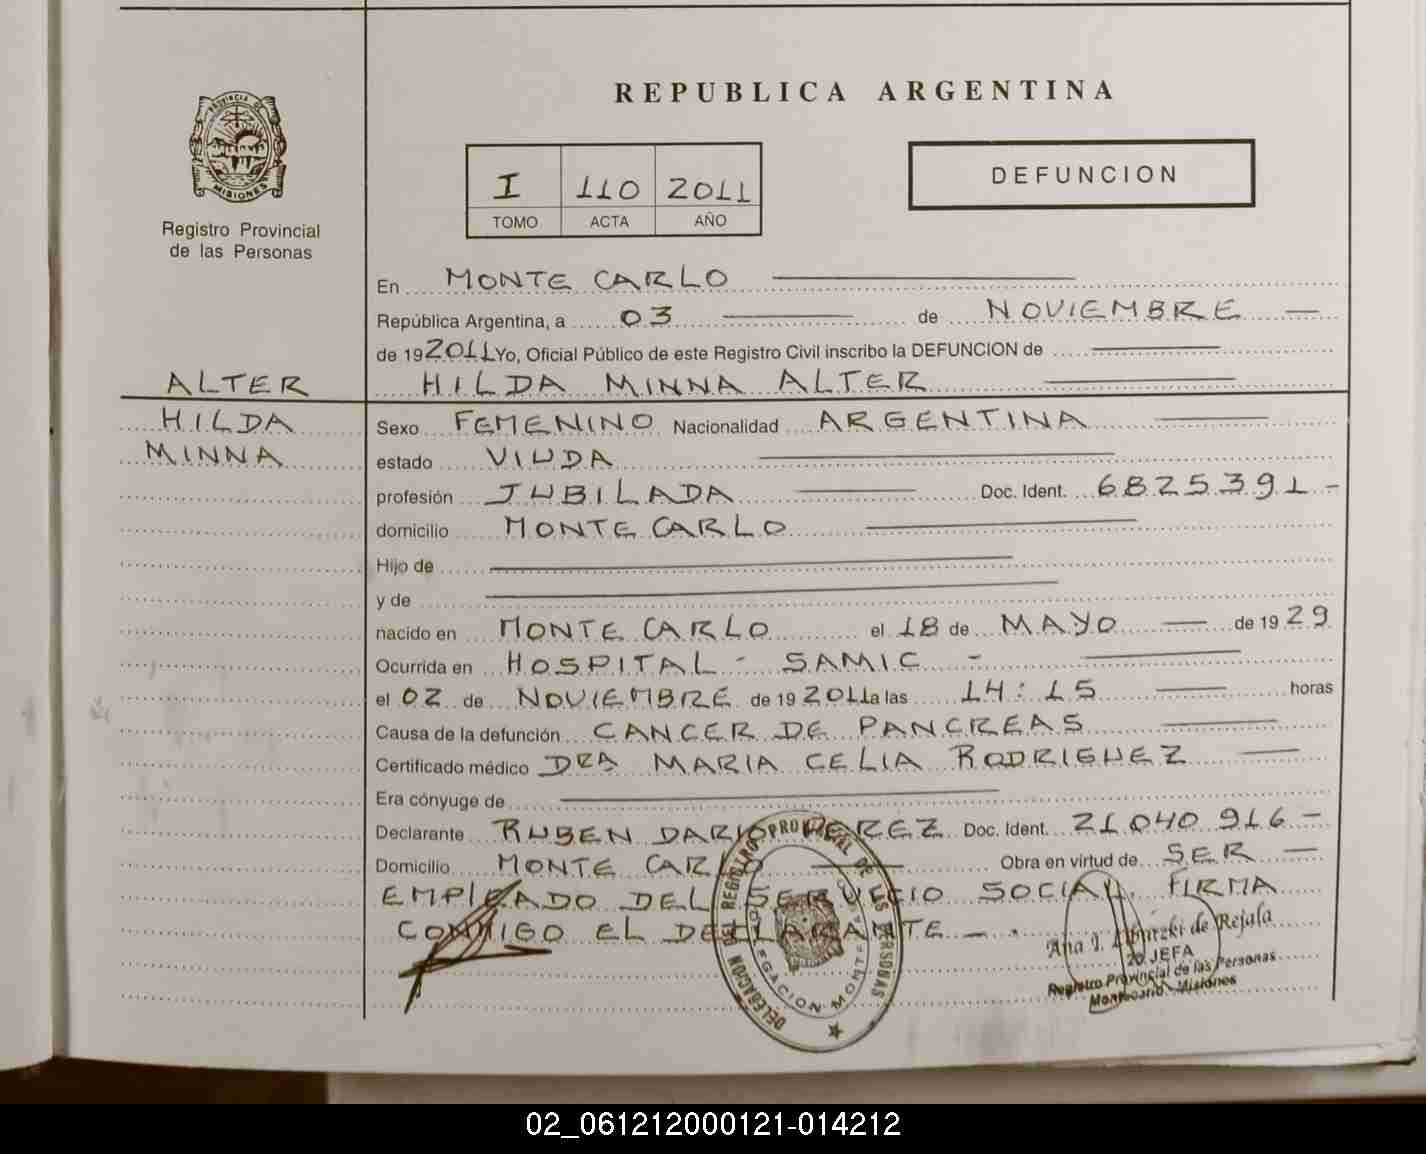 REPUBLICA ARGENTINA
PROVINCIA DE MISIONES
Registro Provincial
de las Personas
I 110 2011
TOMO ACTA AÑO
DEFUNCION
En MONTE CARLO
República Argentina, a 03 de NOVIEMBRE
de 19 2011 Yo, Oficial Público de este Registro Civil inscribo la DEFUNCION de
ALTER HILDA MINNA ALTER
HILDA Sexo FEMENINO Nacionalidad ARGENTINA
MINNA estado VIUDA
profesión JUBILADA Doc. Ident. 6825391 -
domicilio MONTE CARLO
Hijo de
y de
nacido en MONTE CARLO el 18 de MAYO de 1929
Ocurrida en HOSPITAL - SAMIC -
el 02 de NOVIEMBRE de 19 2011 a las 14:15 horas
Causa de la defunción CANCER DE PANCREAS
Certificado médico DRA MARIA CELIA RODRIGUEZ
Era cónyuge de
Declarante RUBEN DARIO PEREZ Doc. Ident. 21040916 -
Domicilio MONTE CARLO Obra en virtud de SER
EMPLEADO DEL SERVICIO SOCIAL. FIRMA
CONMIGO EL DECLARANTE - .
DELEGACION DEL REGISTRO PROVINCIAL DE LAS PERSONAS
DELEGACION MONTE
Ana I. de Rejala
JEFA
Registro Provincial de las Personas
Montecarlo - Misiones
02_061212000121-014212